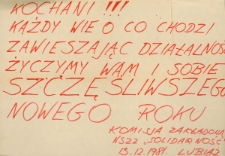 KOCHANI !!!
KAŻDY WIE O CO CHODZI
ZAWIESZAJĄC DZIAŁALNOŚ
ŻYCZYMY WAM I SOBIE
SZCZĘŚLIWSZEGO
NOWEGO ROKU
KOMISJA ZAKŁADOWA
NSZZ „SOLIDARNOŚĆ"
13.12.1981 LUBIĄŻ